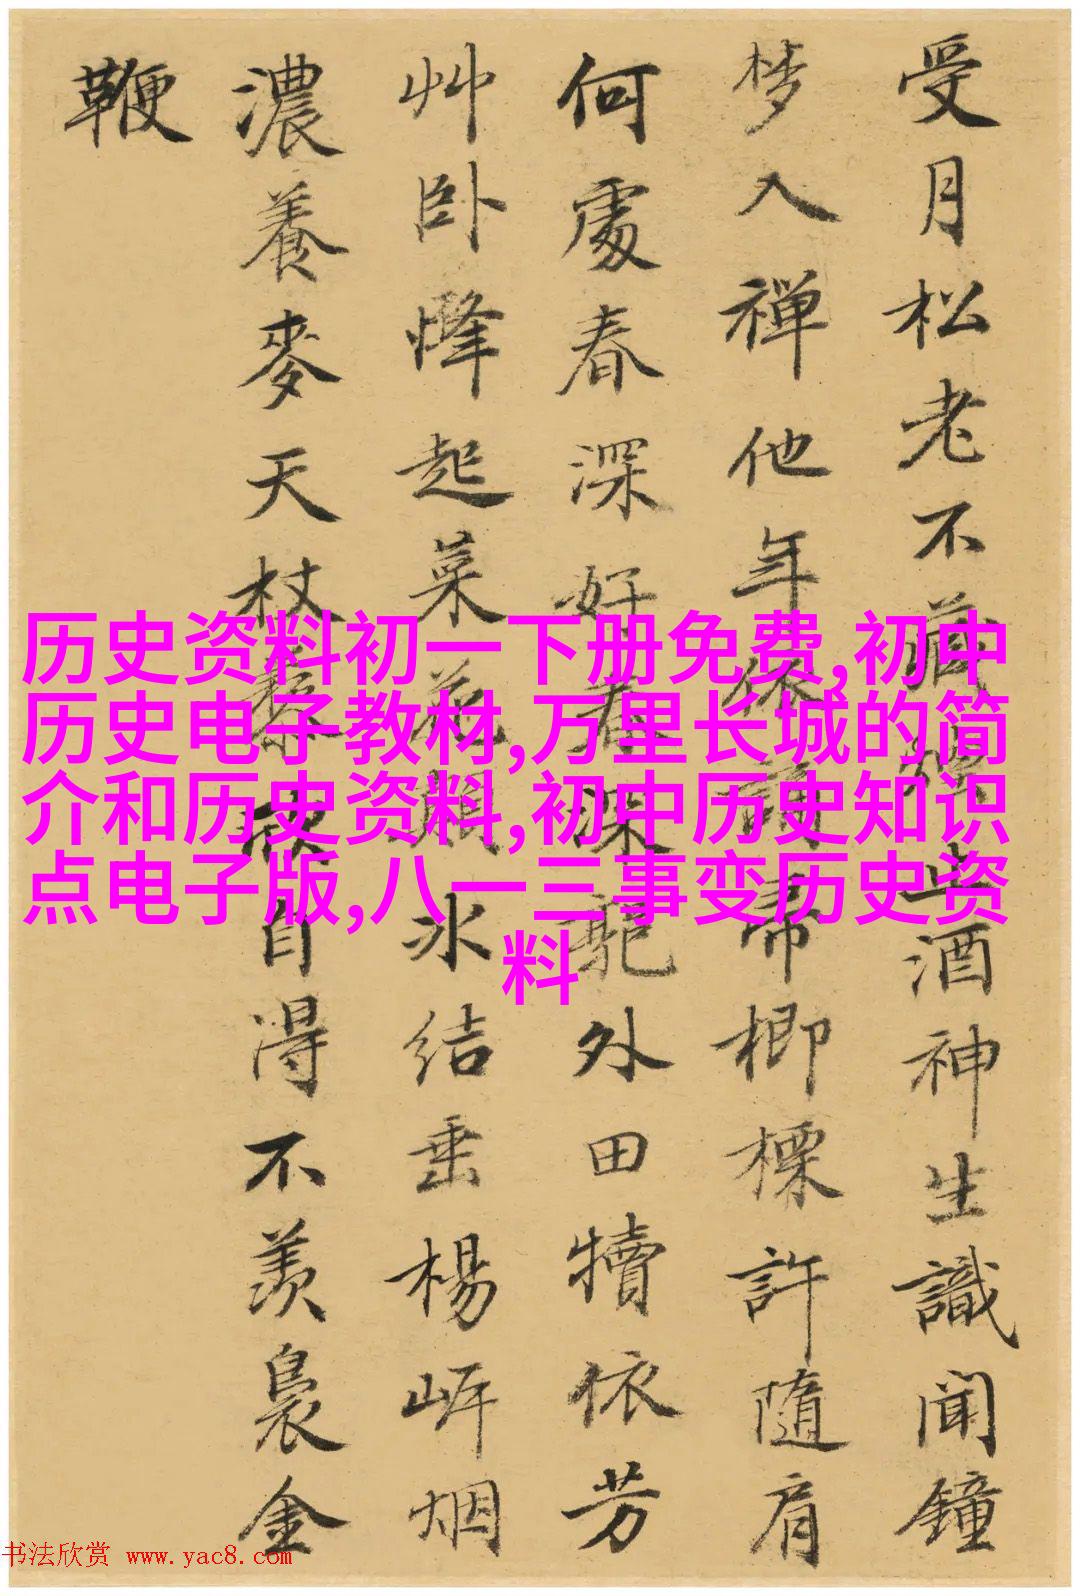 受月松老不藏烟此酒神生識闻鐘
梦入禅他年休讀書柳標許隨肩
何處春深好春深郭外田犢依芳
艸卧烽起菜花烟水结垂楊岸烟
濃養麥天杖藜欣自淂不羡裊金
鞭
历史资料初一下册免费,初中
历史电子教材,万里长城的简
介和历史资料,初中历史知识
点电子版,八一三事变历史资
料
书法欣赏 www.yac8.com